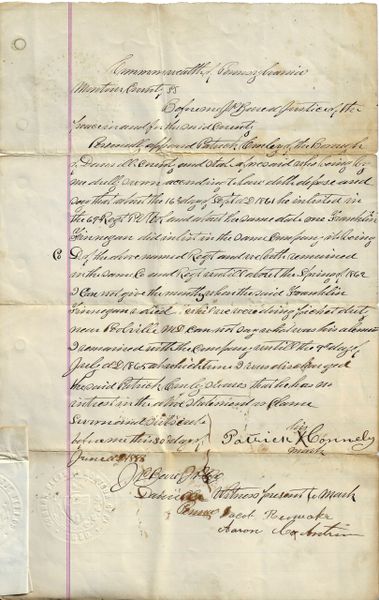 Commonwealth of Pennsylvania
Montour County SS
Before me Justice of the
Peace in and for the said County
Personally appeard Patrick of the Borough
of Danville County and State aforesaid who being by
me dully sworn according to law doth depose and
say that about the 16 day of Sept AD 1861 he inlisted in
the 69 Regt P.V. and about the same date one Franklin
Finnegan did inlist in the same Company it being
Co D of the above named Regt and we both remained
in the same Co and Regt untill about the Spring of 1862
I Can not give the month when the said Franklin
Finnegan died while we were doing picket duty
near Md Can not say what was his
I remained with the Company untill the 9 day of
July AD 1865 at which time I was discharged
the said Patrick swears that he has no
interest in the above statement or claim
Sworn and Subscribed
before me this 30 day of
June AD 1888
his
Patrick X Connely
mark
Witness present to Mark
Jacob
Aaron